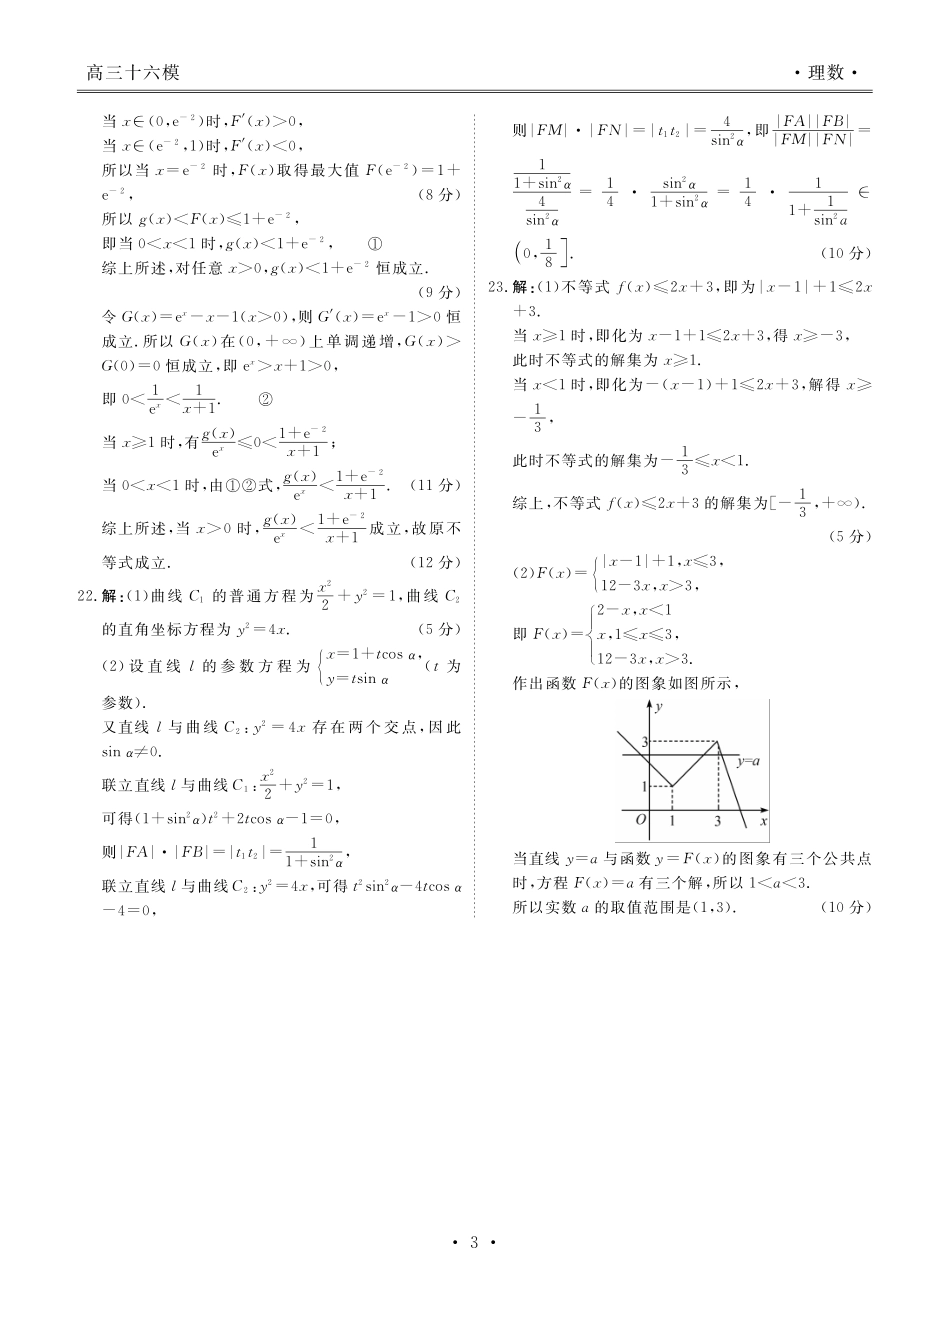 高三十六模
·理数·
当 x∈(0,e⁻²)时,F′(x)>0,
当 x∈(e⁻²,1)时,F′(x)<0,
所以当 x=e⁻² 时,F(x)取得最大值 F(e⁻²)=1+
e⁻², (8 分)
所以 g(x)<F(x)≤1+e⁻²,
即当 0<x<1 时,g(x)<1+e⁻², ①
综上所述,对任意 x>0,g(x)<1+e⁻² 恒成立.
(9 分)
令 G(x)=eˣ-x-1(x>0),则 G′(x)=eˣ-1>0 恒
成立.所以 G(x)在(0,+∞)上单调递增,G(x)>
G(0)=0 恒成立,即 eˣ>x+1>0,
即 0<1/eˣ<1/(x+1). ②
当 x≥1 时,有g(x)/eˣ≤0<(1+e⁻²)/(x+1);
当 0<x<1 时,由①②式,g(x)/eˣ<(1+e⁻²)/(x+1). (11 分)
综上所述,当 x>0 时,g(x)/eˣ<(1+e⁻²)/(x+1)成立,故原不
等式成立. (12 分)
22.解:(1)曲线 C₁ 的普通方程为x²/2+y²=1,曲线 C₂
的直角坐标方程为 y²=4x. (5 分)
(2)设直线 l 的参数方程为{x=1+tcos α, y=tsin α (t 为
参数).
又直线 l 与曲线 C₂:y²=4x 存在两个交点,因此
sin α≠0.
联立直线 l 与曲线 C₁:x²/2+y²=1,
可得(1+sin²α)t²+2tcos α-1=0,
则|FA|·|FB|=|t₁t₂|=1/(1+sin²α),
联立直线 l 与曲线 C₂:y²=4x,可得 t²sin²α-4tcos α
-4=0,
则|FM|·|FN|=|t₁t₂|=4/sin²α,即|FA||FB|/|FM||FN|=
(1/(1+sin²α))/(4/sin²α)=1/4·sin²α/(1+sin²α)=1/4·1/(1+1/sin²a)∈
(0,1/8]. (10 分)
23.解:(1)不等式 f(x)≤2x+3,即为|x-1|+1≤2x
+3.
当 x≥1 时,即化为 x-1+1≤2x+3,得 x≥-3,
此时不等式的解集为 x≥1.
当 x<1 时,即化为-(x-1)+1≤2x+3,解得 x≥
-1/3,
此时不等式的解集为-1/3≤x<1.
综上,不等式 f(x)≤2x+3 的解集为[-1/3,+∞).
(5 分)
(2)F(x)={|x-1|+1,x≤3, 12-3x,x>3,
即 F(x)={2-x,x<1 x,1≤x≤3, 12-3x,x>3.
作出函数 F(x)的图象如图所示,
y
3
y=a
1
O 1 3 x
当直线 y=a 与函数 y=F(x)的图象有三个公共点
时,方程 F(x)=a 有三个解,所以 1<a<3.
所以实数 a 的取值范围是(1,3). (10 分)
· 3 ·